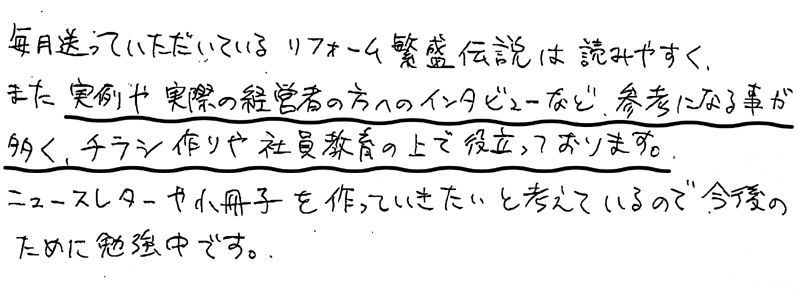 毎月送っていただいているリフォーム繁盛伝説は読みやすく、
また実例や実際の経営者の方へのインタビューなど、参考になる事が
多く、チラシ作りや社員教育の上で役立っております。
ニュースレターや小冊子を作っていきたいと考えているので今後の
ために勉強中です。